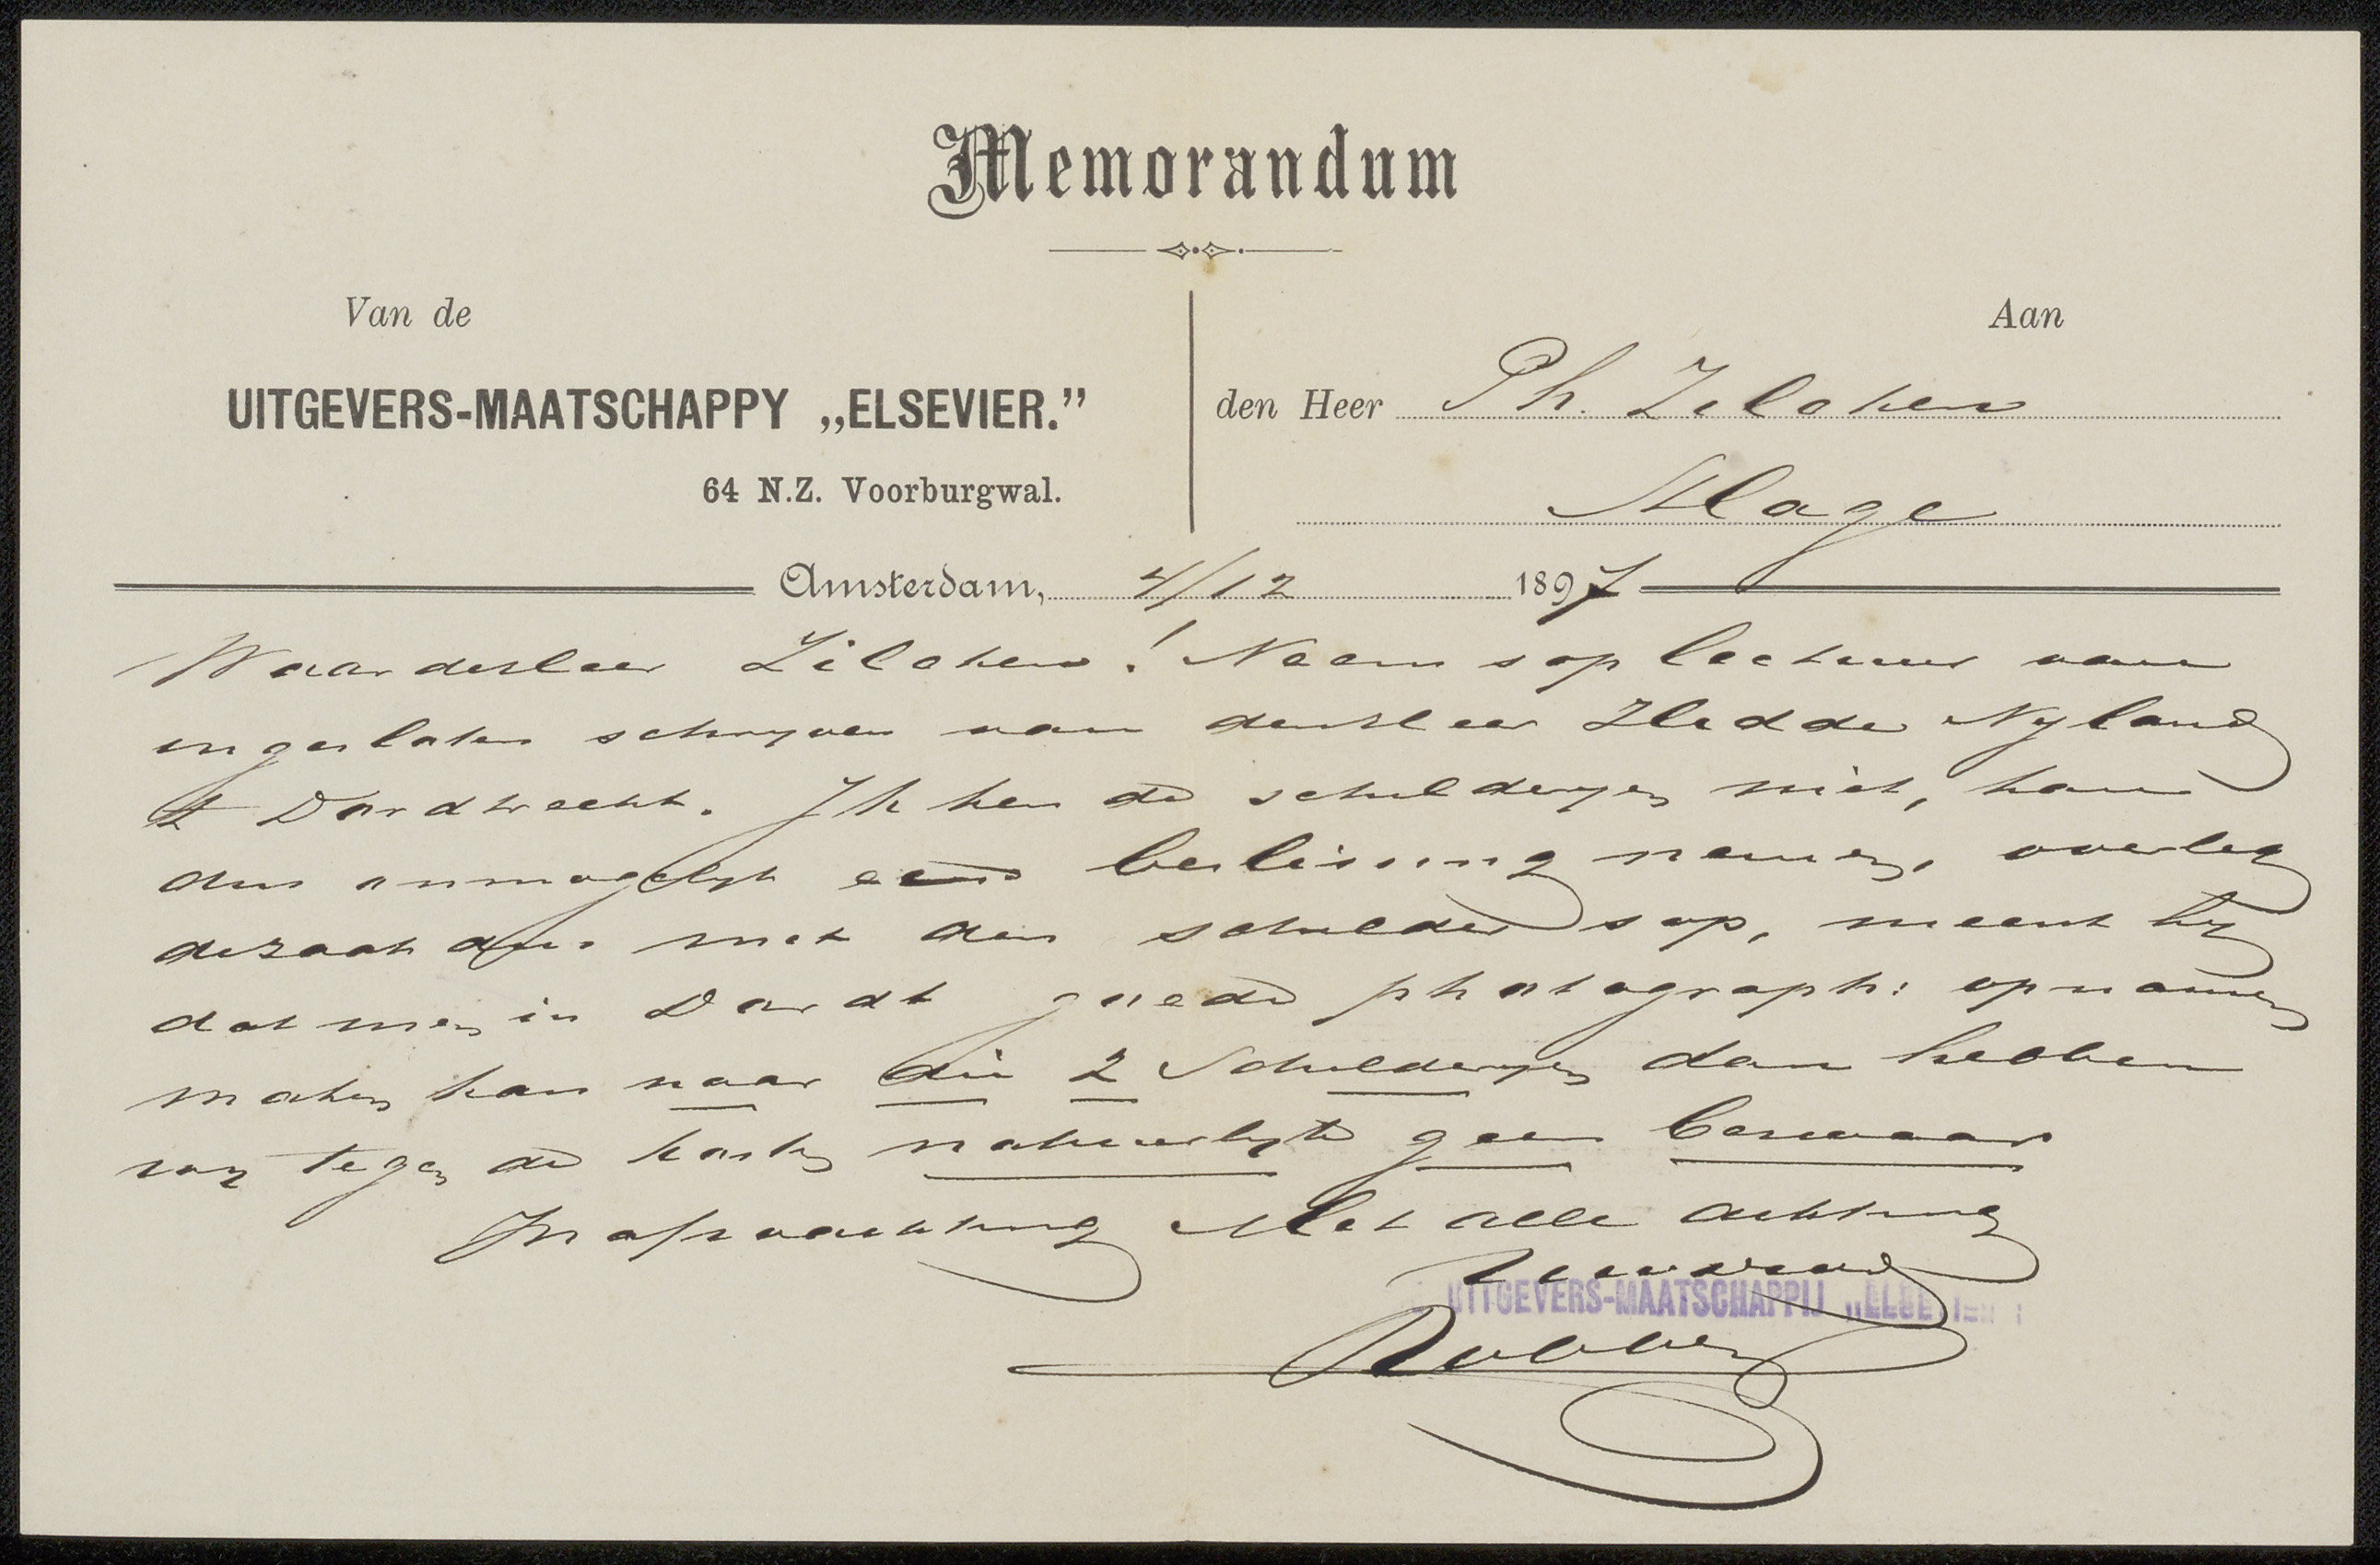 Memorandum
Van de
Aan
UITGEVERS-MAATSCHAPPY „ELSEVIER.”
den Heer Ph. Zilcken
64 N.Z. Voorburgwal.
Hage
Amsterdam, 4/12 1897
Waarde Heer Zilcken! Neem s v p lectuur van
ingesloten schryven van den Heer Hidde Nyland
te Dordrecht. Ik ken de schilderyen niet, kan
dus onmogelyk een beslissing nemen, overleg
de zaak dus met den schilder s v p, meent hy
dat men in Dordt goede photograph: opnamen
maken kan naar die 2 Schilderyen dan hebben
wy tegen de kosten natuurlyk geen bezwaar
In afwachting Met alle achting
UITGEVERS-MAATSCHAPPIJ „ELSEVIER”
Robbers